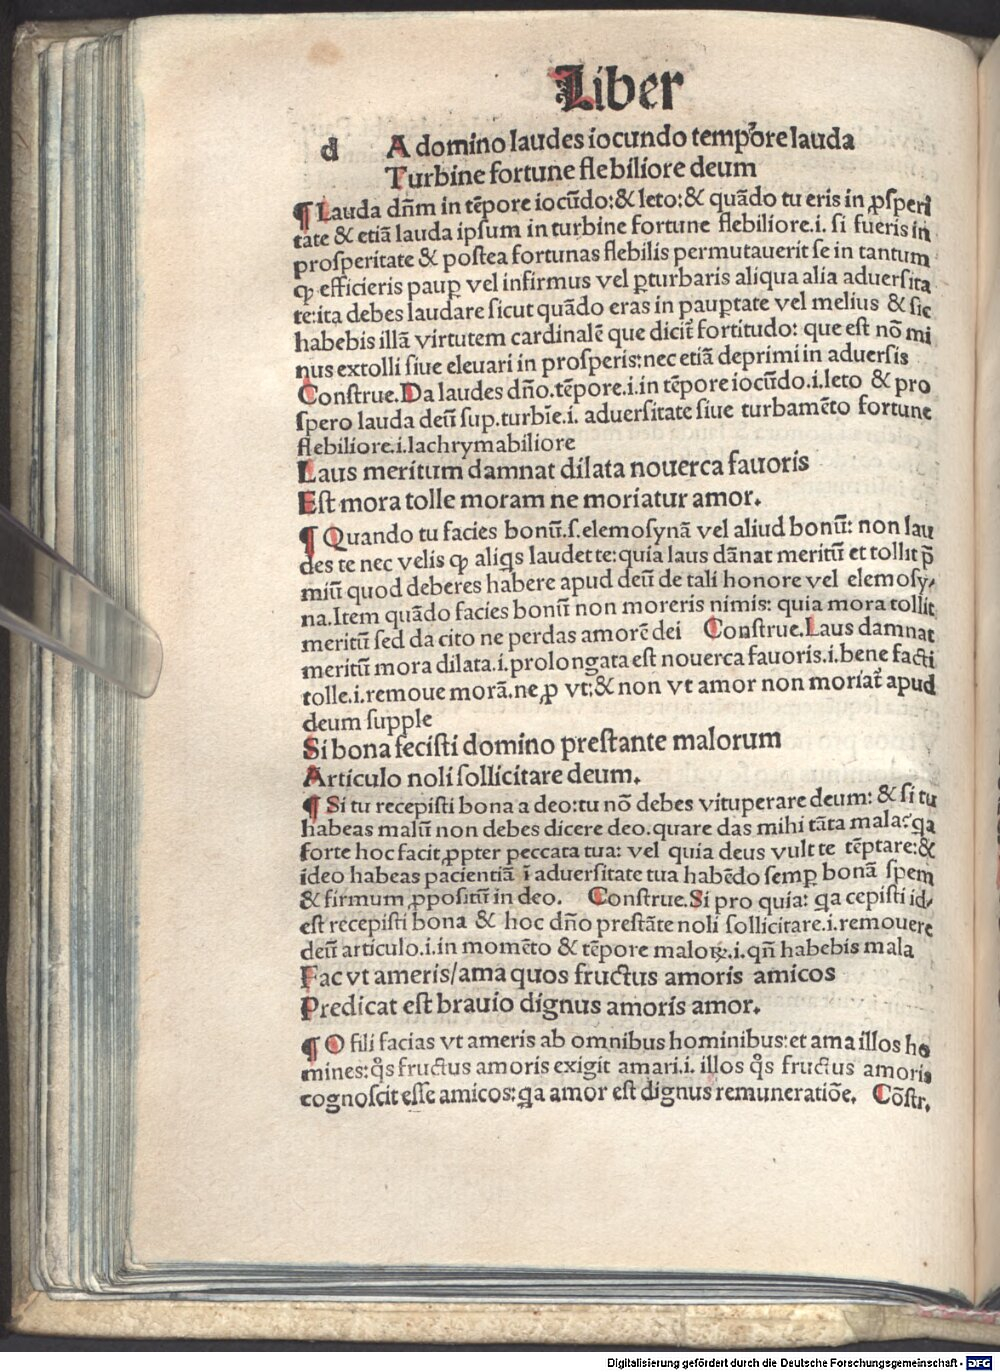 Liber
d A domino laudes iocundo temp̉ore lauda
Turbine fortune flebiliore deum
¶ Lauda dñm in tẽpore iocũdo: & leto: & quãdo tu eris in ꝓsperi
tate & etiã lauda ipsum in turbine fortune flebiliore.i. si fueris in
prosperitate & postea fortunas flebilis permutauerit se in tantum
ꝙ efficieris paup̲ vel infirmus vel p̲turbaris aliqua alia aduersita
te: ita debes laudare sicut quãdo eras in paup̲tate vel melius & sic
habebis illã virtutem cardinalẽ que dicit̃ fortitudo: que est nõ mi
nus extolli siue eleuari in prosperis: nec etiã deprimi in aduersis
Construe. Da laudes dño. tẽpore.i. in tẽpore iocũdo.i. leto & pro
spero lauda deũ sup. turbĩe.i. aduersitate siue turbamẽto fortune
flebiliore.i. lachrymabiliore
Laus meritum damnat dilata nouerca fauoris
Est mora tolle moram ne moriatur amor.
¶ Quando tu facies bonũ.s. elemosynã vel aliud bonũ: non lau
des te nec velis ꝙ aliq̉s laudet te: quia laus dãnat meritũ et tollit p̃
miũ quod deberes habere apud deũ de tali honore vel elemosy⸗
na. Item quãdo facies bonũ non moreris nimis: quia mora tollit
meritũ sed da cito ne perdas amorẽ dei Construe. Laus damnat
meritũ mora dilata.i. prolongata est nouerca fauoris.i. bene facti
tolle.i. remoue morã. ne, ꝓ vt: & non vt amor non moriat̃ apud
deum supple
Si bona fecisti domino prestante malorum
Articulo noli sollicitare deum.
¶ Si tu recepisti bona a deo: tu nõ debes vituperare deum: & si tu
habeas malũ non debes dicere deo. quare das mihi tãta mala? q̉a
forte hoc facit ꝓpter peccata tua: vel quia deus vult te tẽptare: &
ideo habeas pacientiã ĩ aduersitate tua habẽdo semp̲ bonã spem
& firmum ꝓpositũ in deo. Construe. Si pro quia: q̉a cepisti id⸗
est recepisti bona & hoc dño prestãte noli sollicitare.i. remouere
deũ articulo.i. in momẽto & tẽpore maloꝝ.i. qñ habebis mala
Fac vt ameris/ ama quos fructus amoris amicos
Predicat est brauio dignus amoris amor.
¶ O fili facias vt ameris ab omnibus hominibus: et ama illos ho
mines: q̉s fructus amoris exigit amari.i. illos q̉s fructus amoris
cognoscit esse amicos: q̉a amor est dignus remuneratiõe. Cõstr.
Digitalisierung gefördert durch die Deutsche Forschungsgemeinschaft - DFG